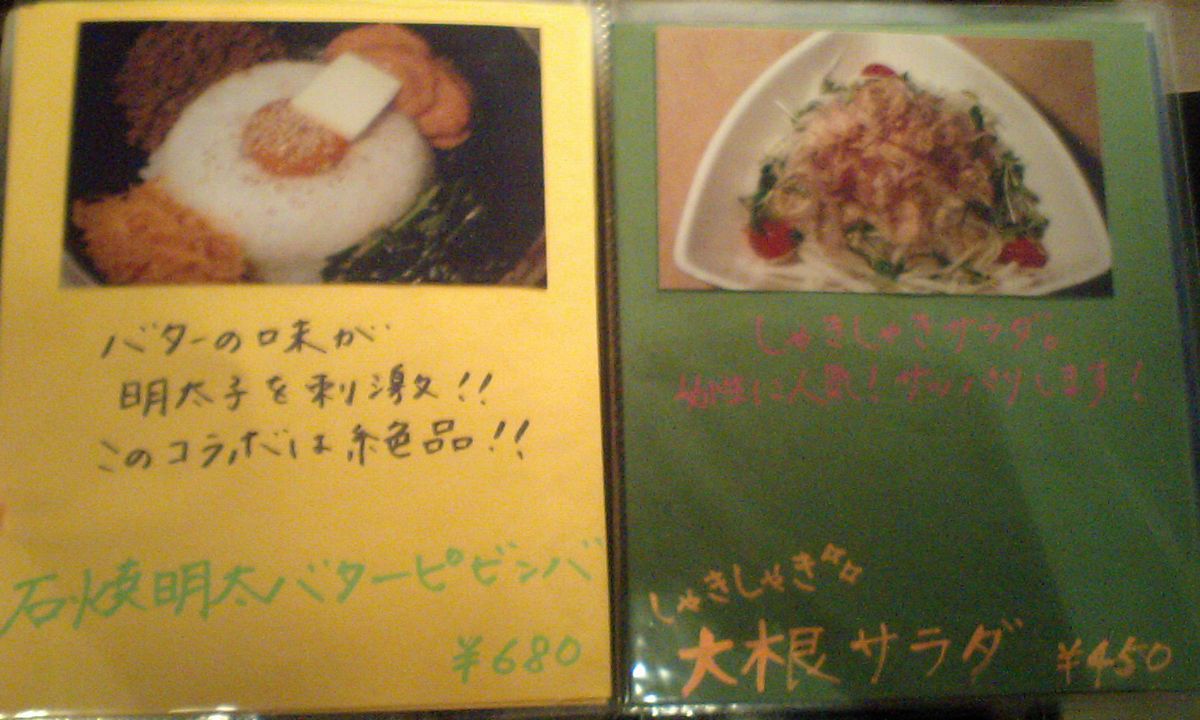 バターの味が
明太子を刺激!!
このコラボは絶品!!
石焼明太バターピビンバ
¥680
しゃきしゃきサラダ。
女性に人気!サッパリします!
しゃきしゃき
大根サラダ ¥450